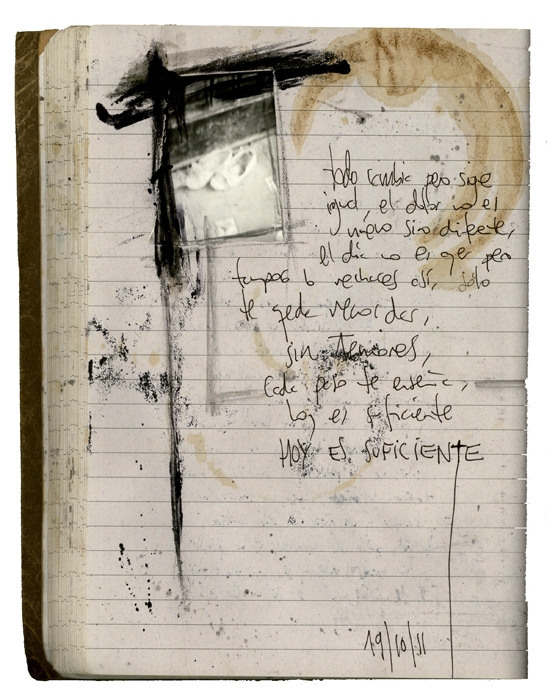 todo cambia pero sigue
igual, el dolor no es
nuevo sino diferente,
el día no es ayer pero
tampoco lo rechaces así, sólo
te queda recordar,
sin temores,
cada paso te enseña,
hoy es suficiente
HOY ES SUFICIENTE
19/10/11